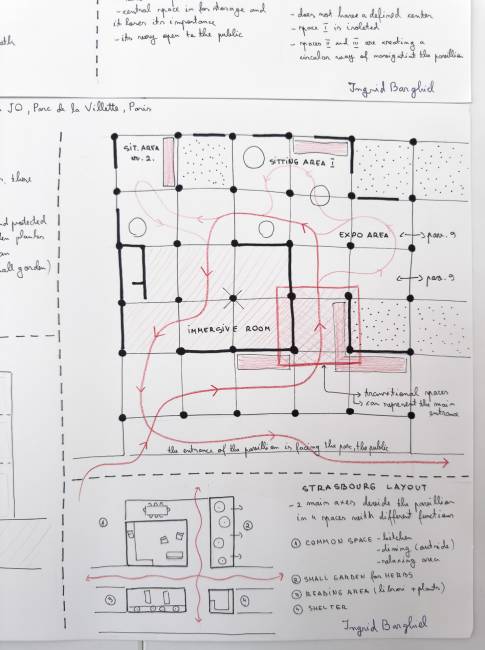 - central space in for storage and
it loses its importance
- its very open to the public
- does not have a defined center
- space I is isolated
- spaces II and III are creating a
circular way of navigating the pavillion
Ingrid Barghiel
JO, Parc de la Villette, Paris
there
and protected
planter
small garden)
SIT. AREA
nr. 2.
SITTING AREA I
EXPO AREA
pav. 9
pav. 9
IMMERSIVE ROOM
transitional spaces
can represent the main
entrance
the entrance of the pavillion is facing the parc, the public
STRASBOURG LAYOUT
- 2 main axes devide the pavillion
in 4 spaces with different functions
① COMMON SPACE - kitchen
- dining (outside)
- relaxing area
② SMALL GARDEN for HERBS
③ READING AREA (library + plants)
④ SHELTER
①
②
③
④
Ingrid Barghiel